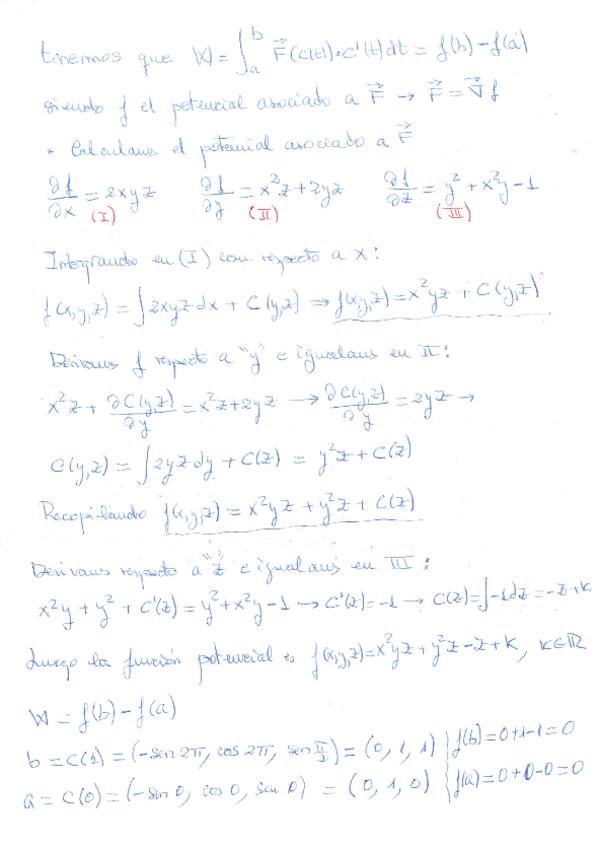 tenemos que W = ∫_a^b F⃗(c(t))·c'(t)dt = f(b) - f(a)
siendo f el potencial asociado a F⃗ → F⃗ = ∇⃗f
• Calculamos el potencial asociado a F⃗
∂f/∂x = 2xyz (I) ∂f/∂y = x²z + 2yz (II) ∂f/∂z = y² + x²y - 1 (III)
Integrando en (I) con respecto a x:
f(x,y,z) = ∫2xyz dx + C(y,z) ⇒ f(x,y,z) = x²yz + C(y,z)
Derivamos f respecto a "y" e igualamos en II:
x²z + ∂C(y,z)/∂y = x²z + 2yz → ∂C(y,z)/∂y = 2yz →
C(y,z) = ∫2yz dy + C(z) = y²z + C(z)
Recopilando f(x,y,z) = x²yz + y²z + C(z)
Derivamos respecto a "z" e igualamos en III:
x²y + y² + C'(z) = y² + x²y - 1 → C'(z) = -1 → C(z) = ∫-1dz = -z + k
Luego la función potencial es f(x,y,z) = x²yz + y²z - z + k, k∈ℝ
W = f(b) - f(a)
b = c(1) = (-sen 2π, cos 2π, sen π/2) = (0, 1, 1) } f(b) = 0+1-1 = 0
a = c(0) = (-sen 0, cos 0, sen 0) = (0, 1, 0) } f(a) = 0+0-0 = 0